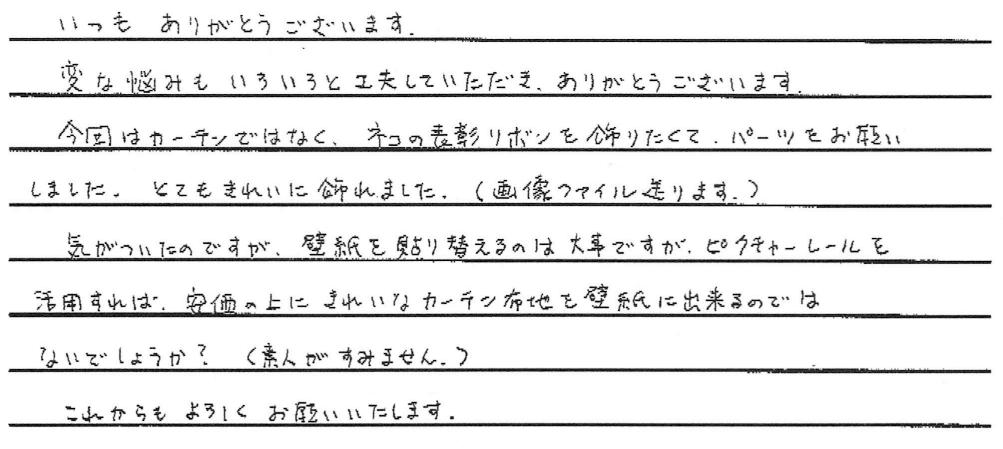 いつも ありがとうございます.
変な悩みも いろいろと工夫していただき、ありがとうございます.
今回はカーテンではなく、ネコの表彰リボンを飾りたくて、パーツをお願い
しました. とてもきれいに飾れました.(画像ファイル送ります.)
気がついたのですが、壁紙を貼り替えるのは大事ですが、ピクチャーレールを
活用すれば、安価の上に きれいなカーテン布地を壁紙に出来るのでは
ないでしょうか?(素人がすみません.)
これからも よろしく お願いいたします.